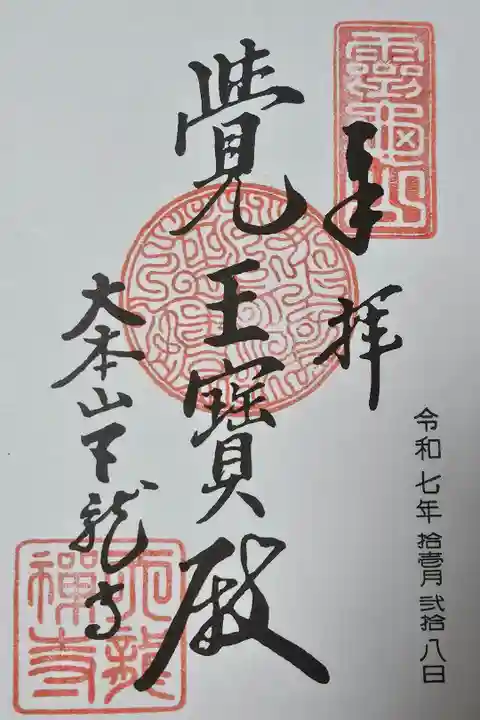 靈龜山
奉拝
令和七年拾壱月弐拾八日
覺王寶殿
大本山天龍寺
天龍
禪寺